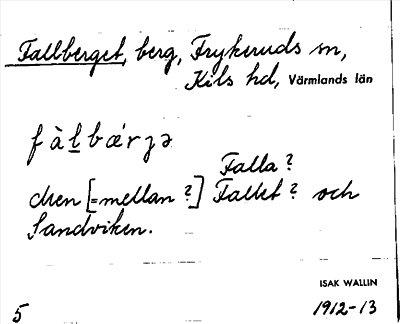 Fallberget, berg, Frykeruds sn,
Kils hd, Värmlands län
fàḻbǽrjə
Falla?
[=mellan ?] Fallet? och
Sandviken.
ISAK WALLIN
5 1912-13